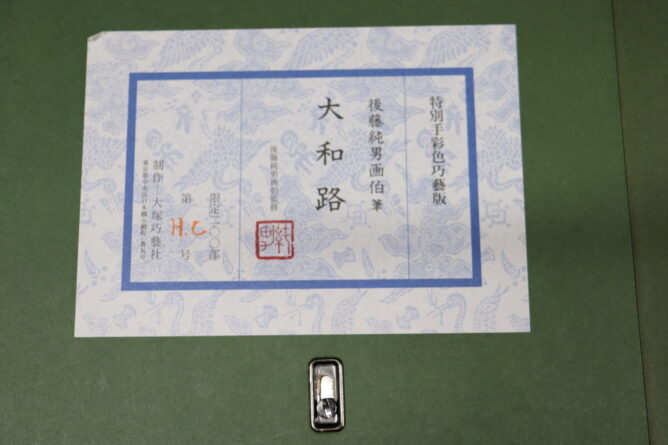 特別手彩色巧藝版
後藤純男画伯筆
大和路
後藤純男画伯監修
純男
限定二〇〇部
第 H.C. 号
制作 大塚巧藝社